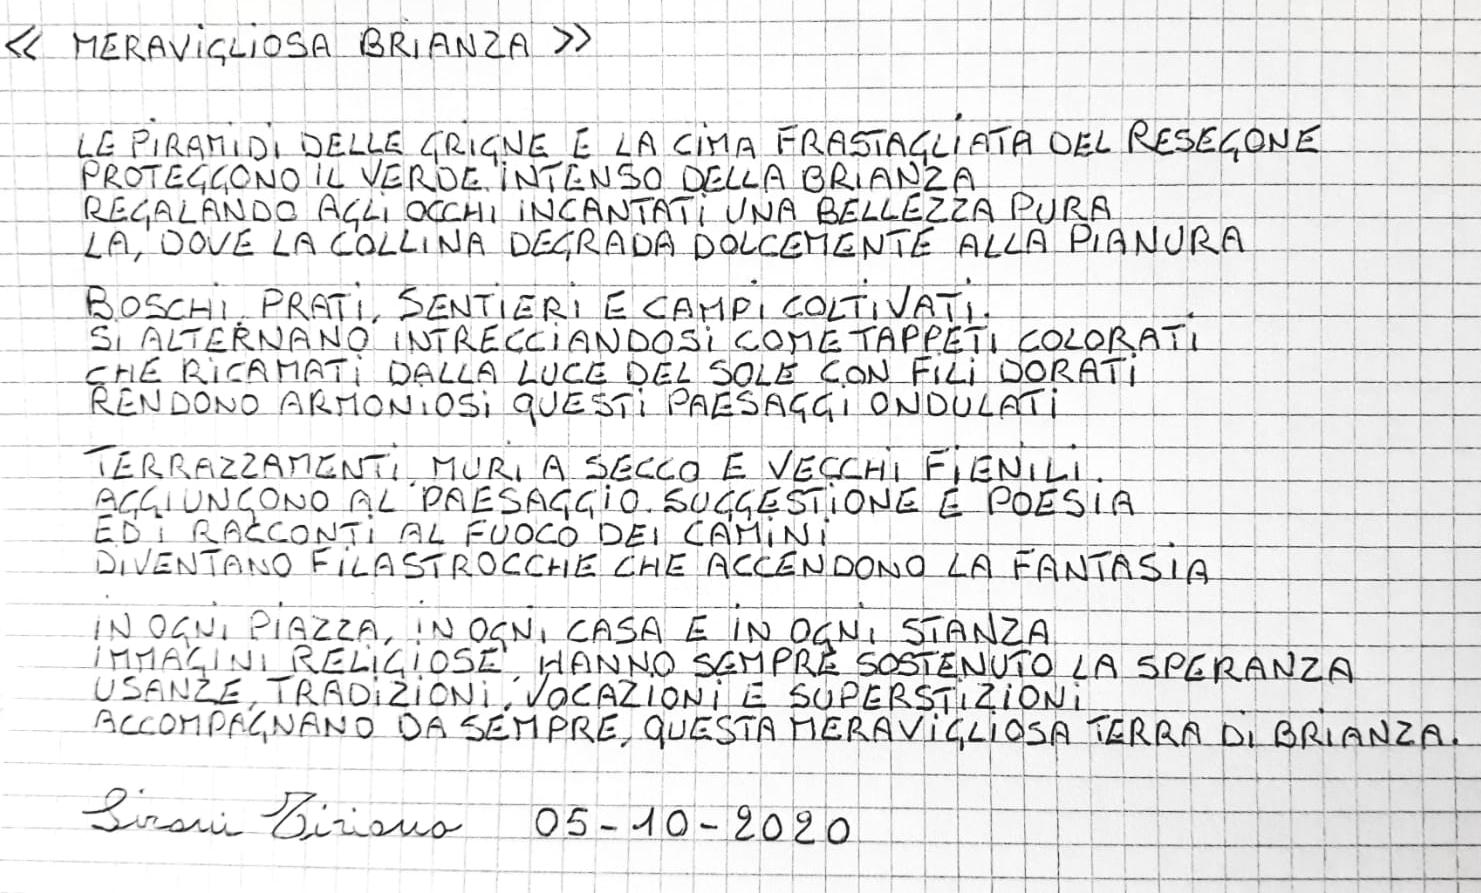 « MERAVIGLIOSA BRIANZA »
LE PIRAMIDI DELLE GRIGNE E LA CIMA FRASTAGLIATA DEL RESEGONE
PROTEGGONO IL VERDE INTENSO DELLA BRIANZA
REGALANDO AGLI OCCHI INCANTATI UNA BELLEZZA PURA
LA, DOVE LA COLLINA DEGRADA DOLCEMENTE ALLA PIANURA
BOSCHI, PRATI, SENTIERI E CAMPI COLTIVATI,
SI ALTERNANO INTRECCIANDOSI COME TAPPETI COLORATI
CHE RICAMATI DALLA LUCE DEL SOLE CON FILI DORATI
RENDONO ARMONIOSI QUESTI PAESAGGI ONDULATI
TERRAZZAMENTI, MURI A SECCO E VECCHI FIENILI,
AGGIUNGONO AL PAESAGGIO SUGGESTIONE E POESIA
ED I RACCONTI AL FUOCO DEI CAMINI
DIVENTANO FILASTROCCHE CHE ACCENDONO LA FANTASIA
IN OGNI PIAZZA, IN OGNI CASA E IN OGNI STANZA
IMMAGINI RELIGIOSE HANNO SEMPRE SOSTENUTO LA SPERANZA
USANZE, TRADIZIONI, VOCAZIONI E SUPERSTIZIONI
ACCOMPAGNANO DA SEMPRE, QUESTA MERAVIGLIOSA TERRA DI BRIANZA.
05-10-2020